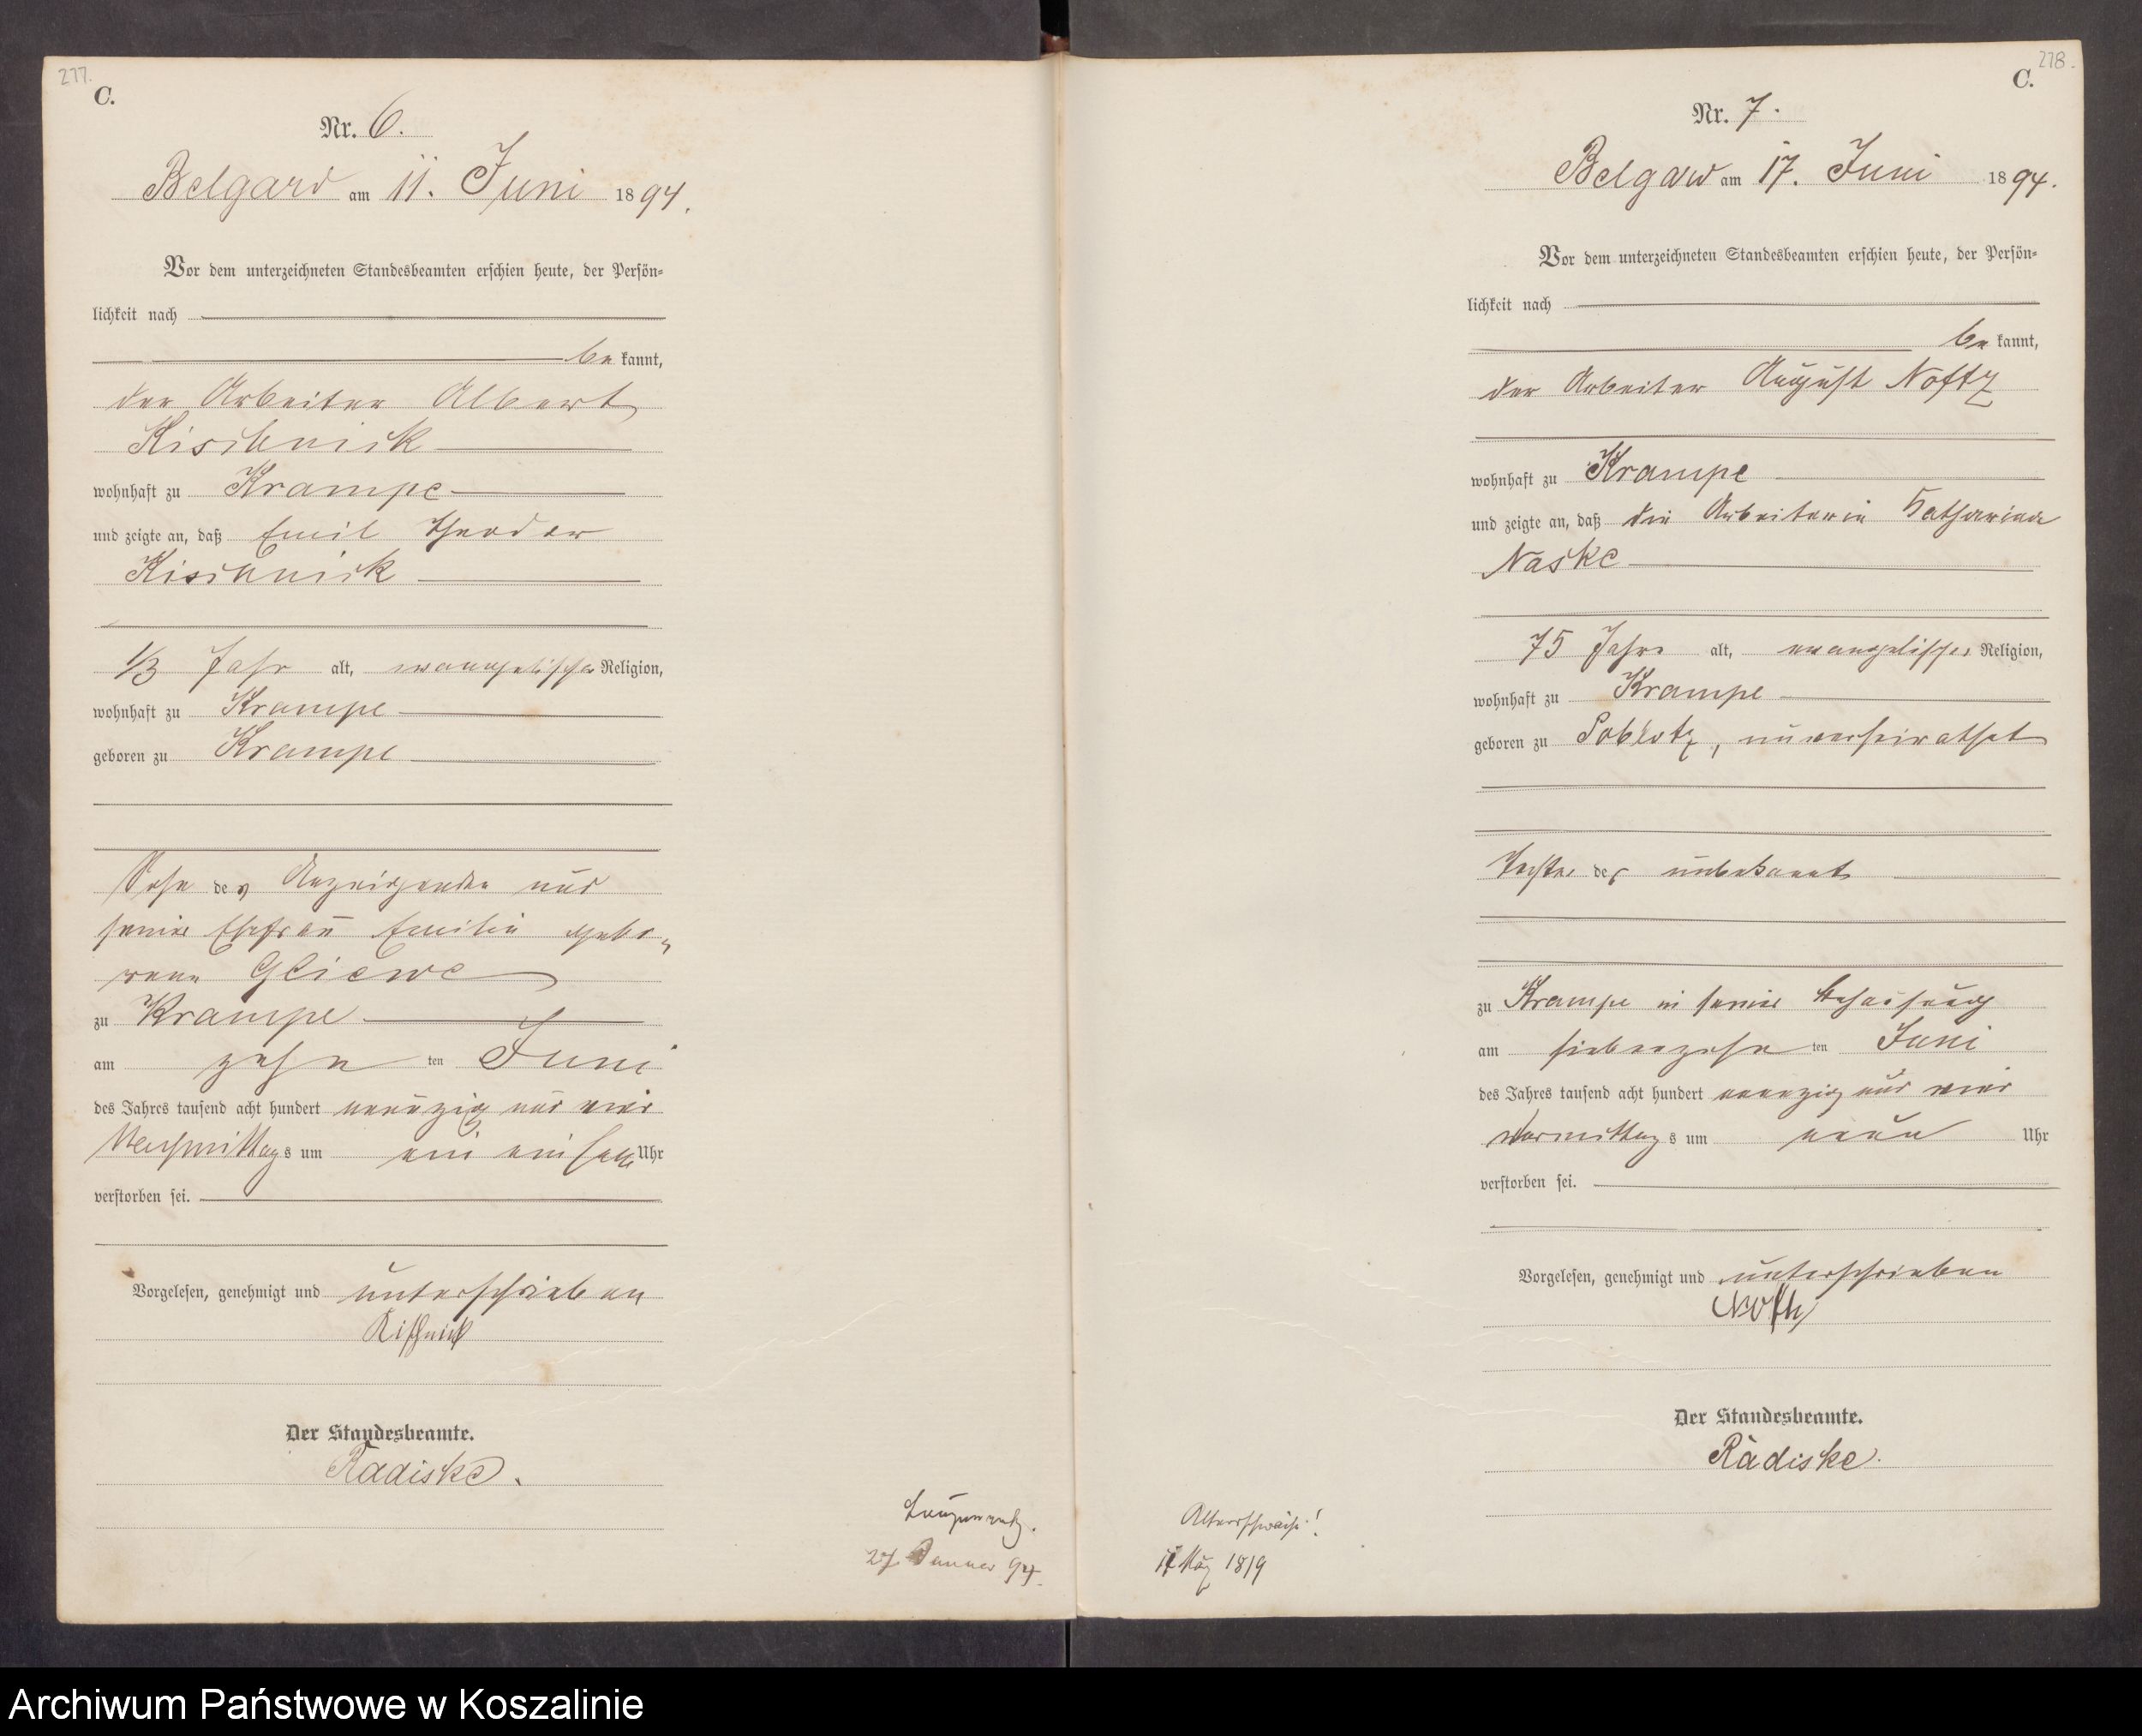 277.
C.
Nr. 6.
Belgard am 11. Juni 1894.
Vor dem unterzeichneten Standesbeamten erschien heute, der Persön-
lichkeit nach
be kannt,
der Arbeiter Albert
wohnhaft zu Krampe
und zeigte an, daß Emil Theodor
1/3 Jahr alt, evangelischer Religion,
wohnhaft zu Krampe
geboren zu Krampe
Sohn des Anzeigenden und
seiner Ehefrau Emilie gebo-
renen Gliewe
zu Krampe
am zehn ten Juni
des Jahres tausend acht hundert neunzig und vier
Nachmittags um ein ein halb Uhr
verstorben sei.
Vorgelesen, genehmigt und unterschrieben
Der Standesbeamte.
Radiske.
27. Januar 94.
278.
C.
Nr. 7.
Belgard am 17. Juni 1894.
Vor dem unterzeichneten Standesbeamten erschien heute, der Persön-
lichkeit nach
be kannt,
der Arbeiter August Noffz
wohnhaft zu Krampe
und zeigte an, daß die Arbeiterin Katharine
Naske
75 Jahre alt, evangelischer Religion,
wohnhaft zu Krampe
geboren zu unverheirathet
Tochter der unbekannt
zu Krampe in seiner Behausung
am siebenzehn ten Juni
des Jahres tausend acht hundert neunzig und vier
Vormittags um neun Uhr
verstorben sei.
Vorgelesen, genehmigt und unterschrieben
Der Standesbeamte.
Radiske.
Altersschwäche!
März 1819
Archiwum Państwowe w Koszalinie